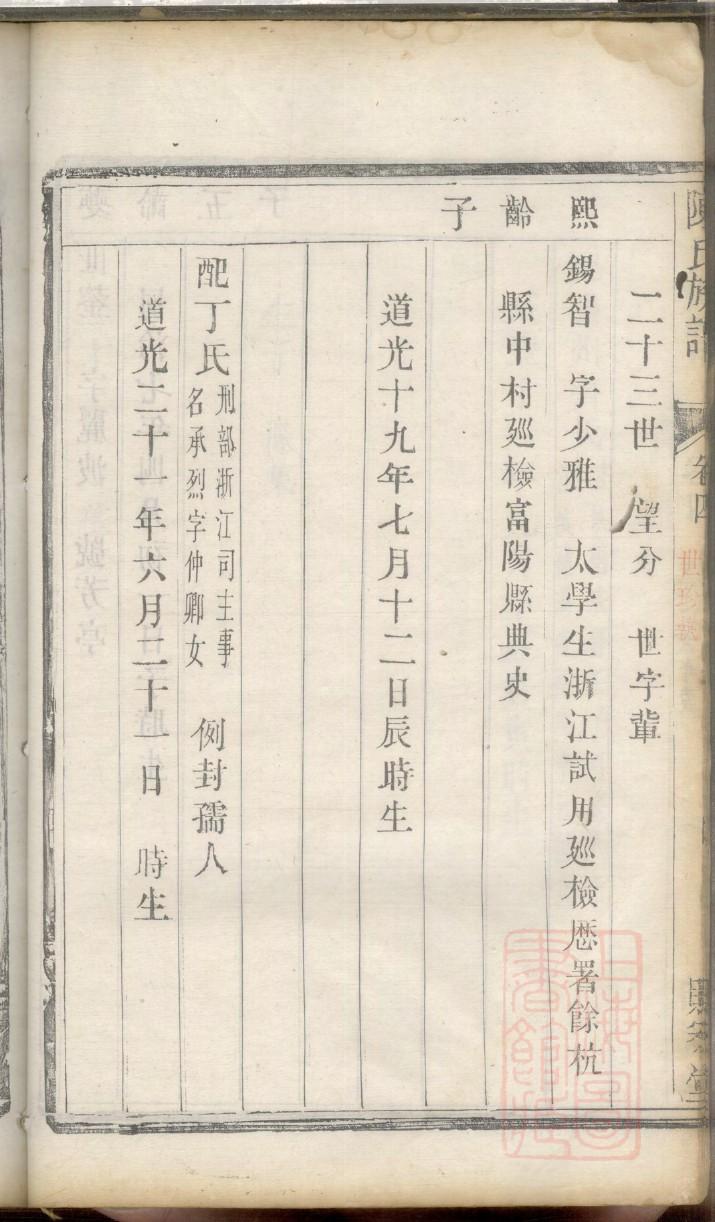 陳氏族譜
卷四
世珍號
二十三世 望分 世字輩
熙
錫智 字少雅 太學生浙江試用廵檢歷署餘杭
齡
縣中村廵檢富陽縣典史
子
道光十九年七月十二日辰時生
配丁氏
刑部浙江司主事
名承烈字仲卿女
例封孺人
道光二十一年六月二十一日 時生